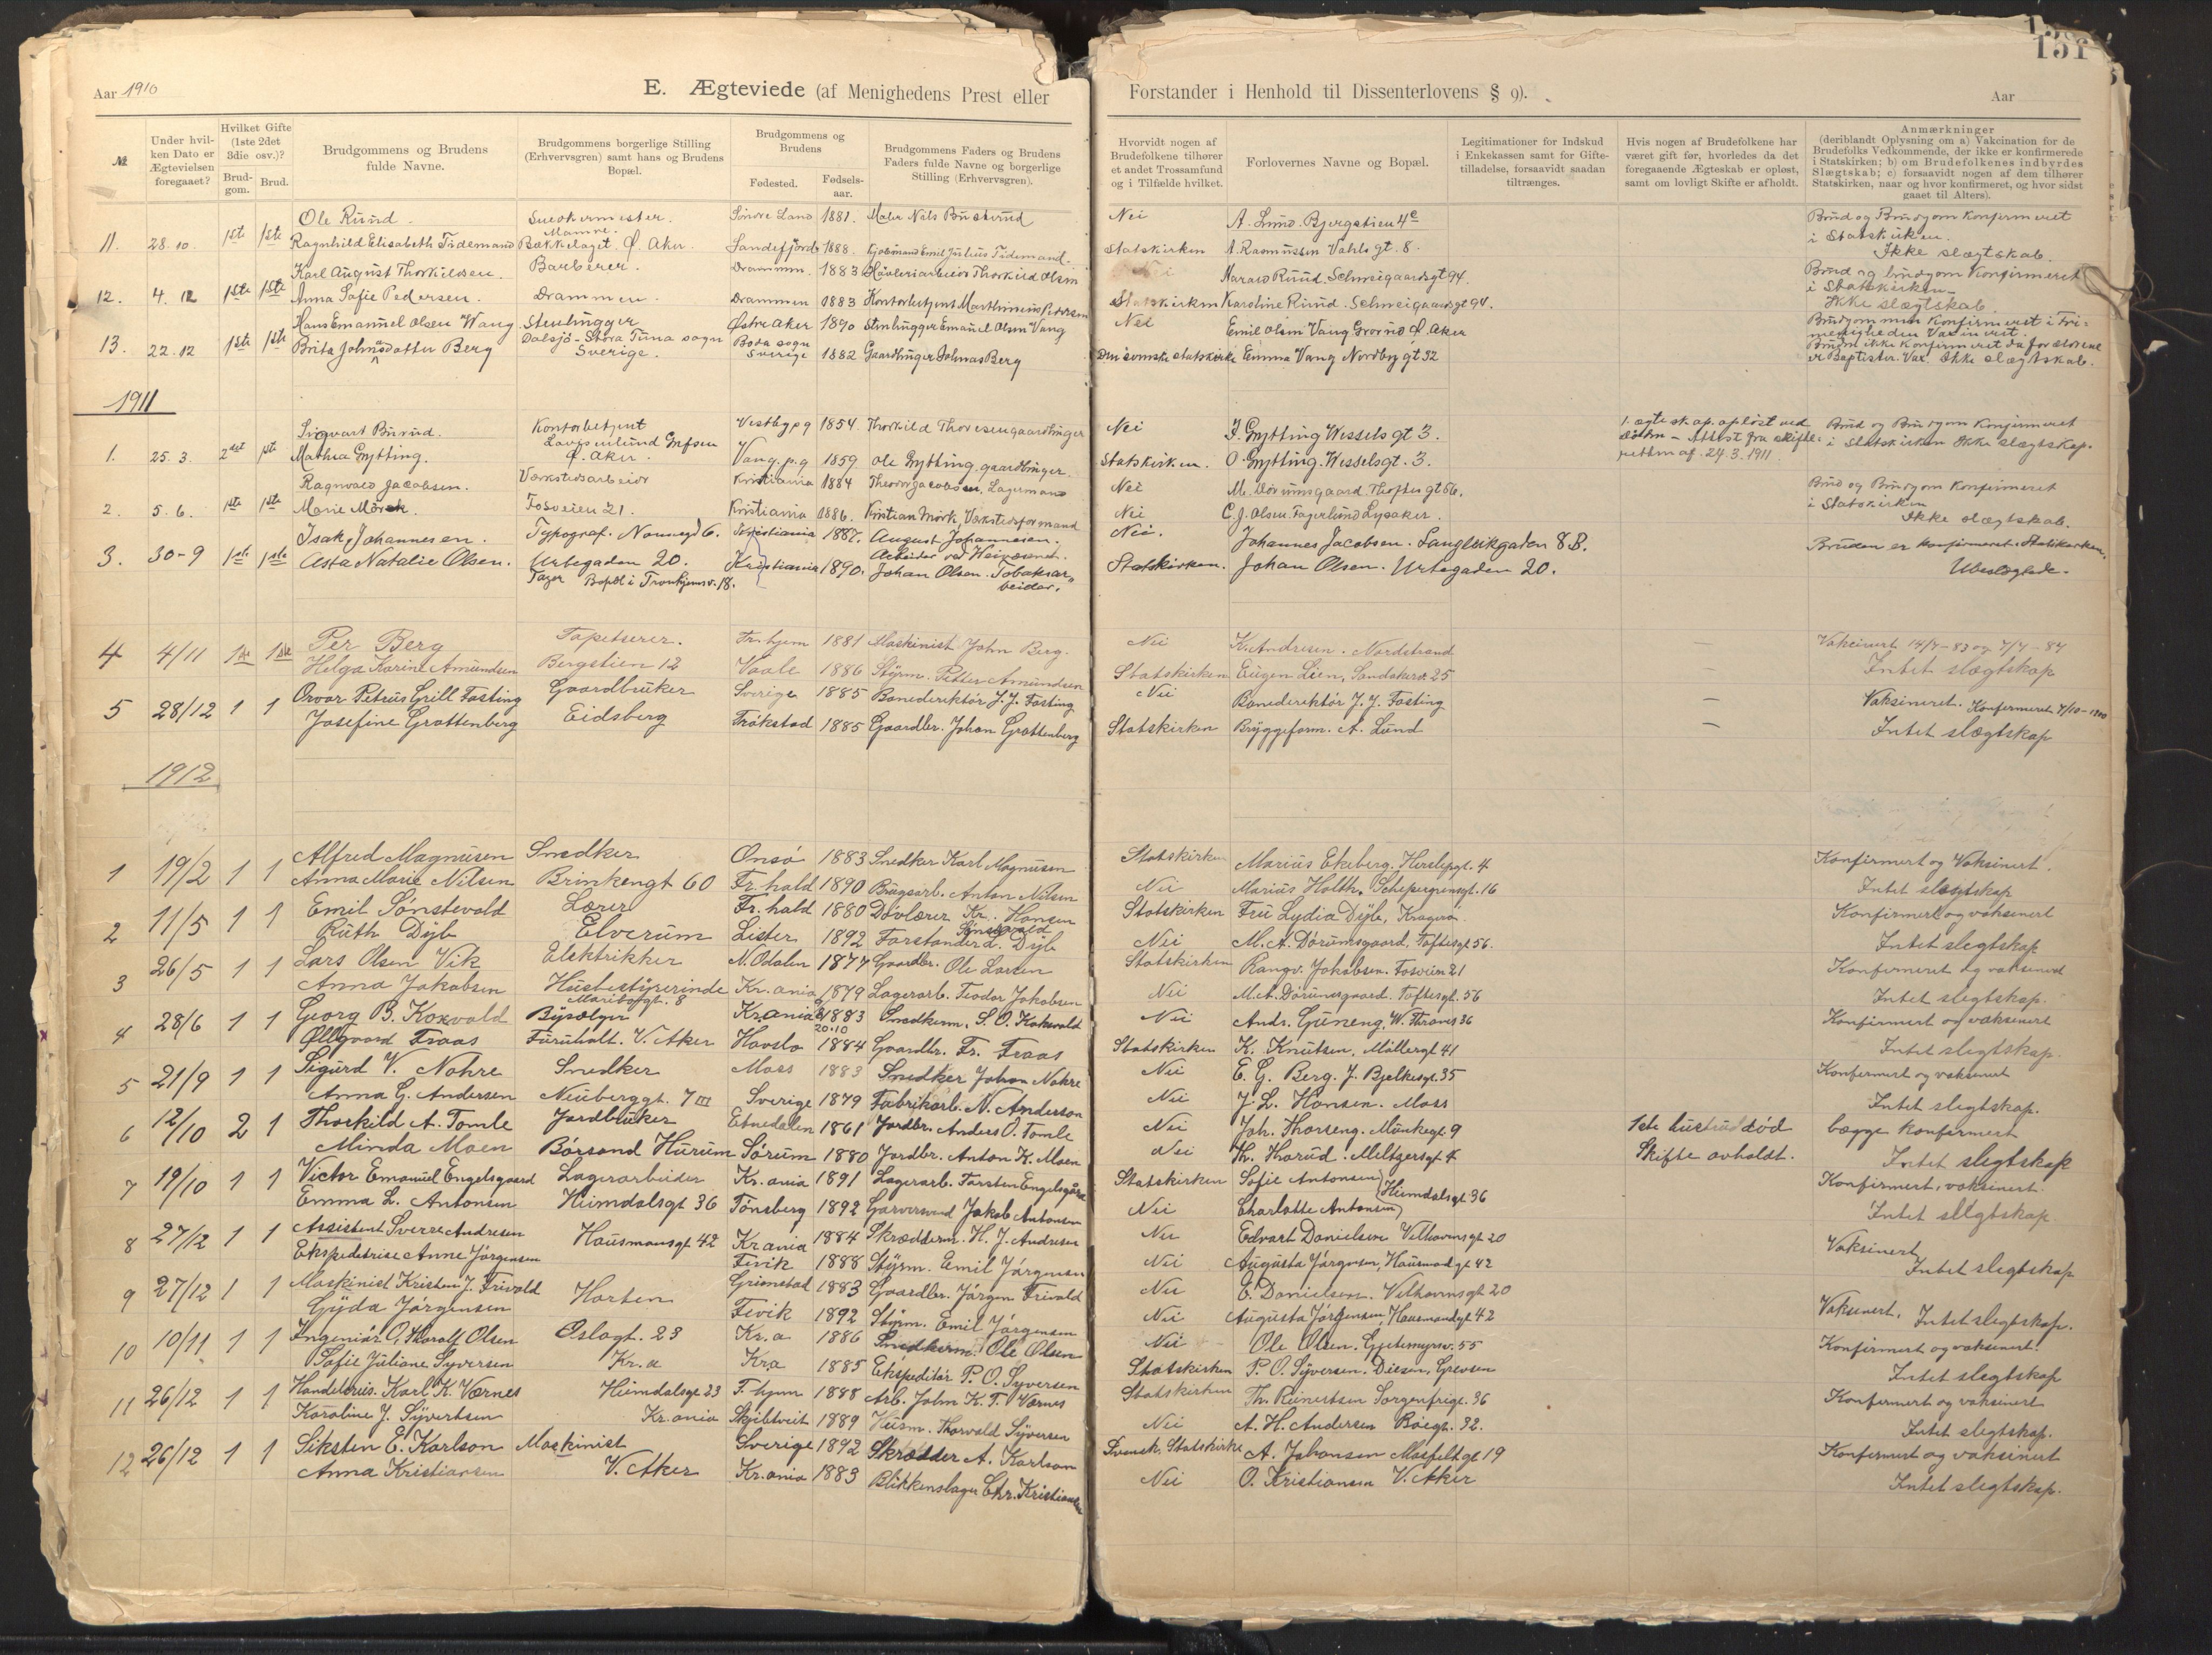 151
Aar 1910
E. Ægteviede (af Menighedens Prest eller
Forstander i Henhold til Dissenterlovens § 9).
Aar
№
Under hvil-
ken Dato er
Ægtevielsen
foregaaet?
Hvilket Gifte
(1ste 2det
3die osv.)?
Brud-
gom.
Brud.
Brudgommens og Brudens
fulde Navne.
Brudgommens borgerlige Stilling
(Erhvervsgren) samt hans og Brudens
Bopæl.
Brudgommens og
Brudens
Fødested.
Fødsels-
aar.
Brudgommens Faders og Brudens
Faders fulde Navne og borgerlige
Stilling (Erhvervsgren).
Hvorvidt nogen af
Brudefolkene tilhører
et andet Trossamfund
og i Tilfælde hvilket.
Forlovernes Navne og Bopæl.
Legitimationer for Indskud
i Enkekassen samt for Gifte-
tilladelse, forsaavidt saadan
tiltrænges.
Hvis nogen af Brudefolkene har
været gift før, hvorledes da det
foregaaende Ægteskab er opløst,
samt om lovligt Skifte er afholdt.
Anmærkninger
(deriblandt Oplysning om a) Vakcination for de
Brudefolks Vedkommende, der ikke er konfirmerede
i Statskirken; b) om Brudefolkenes indbyrdes
Slægtskab; c) forsaavidt nogen af dem tilhører
Statskirken, naar og hvor konfirmeret, og hvor sidst
gaaet til Alters).
Ole Ruud. Snedkermester. Søndre Land 1881. Maler Nils Buskerud Nei A. Lund. Bjergstien 4c Brud og Brudgom Konfirmeret
11. 28.10. 1ste 1ste Ragnhild Elisabeth Tidemand Bækkelaget Ø. Aker Sandefjord 1888. Kjøbmand Emil Julius Tidemand. Statskirken A Rasmussen Vahls gt. 8. i Statskirken. Ikke slægtskab.
Karl August Thorkildsen. Barberer. Drammen. 1883 Høvleriarbeider Thorkild Olsen Nei Harald Ruud. Schweigaardsgt 94. Brud og brudgom Konfirmeret
12. 4. 12 1ste 1ste Anna Sofie Pedersen. Drammen. Drammen 1883 Kontorbetjent Marthinius Pedersen Statskirken Karoline Ruud. Schweigaardsgt 94. i Statskirken - Ikke slægtskab
Hans Emanuel Olsen Wang Stenhugger Østre Aker 1890 Stenhugger Emanuel Olsen Vang Nei Emil Olsen Vang Grorud Ø. Aker Brudgommen Konfirmeret i Fri-
menigheden Vaxineret.
13. 22.12 1ste 1ste Brita Johnsdatter Berg Dalsjö - Stora Tuna sogn Sverige. Boda sogn Sverige 1882 Gaardbruger Johnas Berg Den svenske statskirke Emma Vang Nordbygt 52 Bruden ikke Konfirmeret da forældrene
er Baptister. Vax. Ikke slægtskab.
1911
Sigvart Burud. Kontorbetjent Vestby pg 1854. Thorkild Thoresen gaardbruger Nei J. Grytting Wessels gt 3. 1. ægteskap opløst ved Brud og Brudgom Konfirmeret
1. 25.3. 2det 1ste Mathea Grytting. Ø. Aker. Vang. p.g 1859 Ole Grytting. gaardbruger. Statskirken. O. Grytting. Wesselsgt. 3. døden - Attest fra skifte-
retten af 24.3.1911. i Statskirken Ikke slægtskap.
Ragnvald Jacobsen. Værkstedsarbeider Kristiania 1884 Theodor Jacobsen, Lagermand Nei M. Dørumsgaard. Thoftes gt 56. Brud og Brudgom Konfirmeret
2. 5.6. 1ste 1ste Marie Mørck. Fosveien 21. Kristiania 1886. Kristian Mørk, Værkstedsformand Nei C. J. Olsen. Fagerlund Lysaker. i Statskirken Ikke slægtskab.
Isak Johannesen. Typograf. Kristiania 1887. August Johannesen. Arbeider ved Veivæsenet. Nei. Johannes Jacobsen. Langleikgaden 8 B. Bruden er Konfirmeret i Statskirken.
3. 30-9 1ste 1ste Asta Natalie Olsen. Urtegaden 20. Kristiania 1890. Johan Olsen. Tobaksar-
beider. Statskirken. Johan Olsen. Urtegaden 20. Ubeslægtede.
Tager Bopæl i Tronhjemsv. 18.
4 4/11 1ste 1ste Per Berg Tapetserer. Tr.hjem 1881 Maskinist John Berg. Nei K. Andresen. Nordstrand — Vakcinert 14/7-83 og 7/7-87
Helga Karine Amundsen Bergstien 12 Vaale 1886 Styrm. Petter Amundsen Statskirken Eugen Lien, Sandakerv. 25 — Intet slægtskap
5 28/12 1 1 Orvar Petrus Grill Fasting Gaardbruker Sverige 1885 Banedirektør J. J. Fasting Nei Banedirektør J. J. Fasting — Vaksineret. Konfirmeret 7/10-1900
Josefine Grottenberg Eidsberg Trøkstad 1885 Gaardbr. Johan Grottenberg Statskirken Bryggeform. A. Lund — Intet slægtskap
1912
1 19/2 1 1 Alfred Magnusen Snedker Onsø 1883 Snedker Karl Magnusen Statskirken Marius Ekeberg. Herslepsgt. 4 Konfirmert og Vaksinert.
Anna Marie Nilsen Brinkengt 60 Fr.hald 1890 Brugsarb. Anton Nilsen Nei Marius Holth. Schepergrensgt. 16 Intet slegtskap
2 11/5 1 1 Emil Sønstevold Lærer Fr. hald 1880 Døvlærer Kr. Hansen Sønstevold Statskirken Fru Lydia Dybe, Kragerø. Konfirmert og vaksinert
Ruth Dybe Elverum Lister 1892 Forstander d. Dybe Nei M. A. Dørumsgaard, Toftesgt 56. Intet slegtskap
3 26/5 1 1 Lars Olsen Vik Elektrikker N. Odalen 1877 Gaardbr. Ole Larsen Statskirken Rangv. Jakobsen. Fosveien 21 Konfirmeret og vaksinerd
Anna Jakobsen Husbestyrerinde Kr.ania 1879 Lagerarb. Teodor Jakobsen Nei M. A. Dørumsgaard. Toftesgt. 56 Intet slegtskap.
Maribogt. 8
4 28/6 1 1 Georg B. Koxvold Bysælger Kr.ania 1883 Snedkerm. S. O. Kokswold Nei Andr. Guneng, W. Thranes 36 Konfirmert og vaksinert
Ollgaard Fraas Furuholt. V. Aker Havslo 20.10 1884 Gaardbr. Fr. Fraas Statskirken K. Knutsen, Møllergt 41 Intet slegtskap.
5 21/9 1 1 Sigurd V. Nohre Snedker Moss 1883 Snedker Johan Nohre Nei E. G. Berg. J. Bjelkesgt. 35 Konfirmert og vaksinert
Anna G. Andersen Neuberggt. 7 III Sverige 1879 Fabrikarb. N. Anderson Nei J. L. Hansen. Moss Intet slegtskap.
6 12/10 2 1 Thorkild A. Tomle Jordbruker Etnedalen 1861 Jordbr. Anders O. Tomle Nei Joh. Thorseng. Munkegt. 9 1ste hustru død begge konfirmert
Minda Moen Børsand Hurum Sørum 1880 Jordbr. Anton K. Moen Nei Th. Horud. Meltzersgt 4 Skifte avholdt. Intet slegtskap
7 19/10 1 1 Victor Emanuel Engelsgaard Lagerarbeider Kr.ania 1891 Lagerarb. Torsten Engelsgård Statskirken Sofie Antonsen Konfirmert, vaksinert.
Emma L. Antonsen Heimdalsgt 36 Tønsberg 1892 Garversvend Jakob Antonsen Nei Charlotte Antonsen Heimdalsgt 36 Intet slegtskap
8 27/12 1 1 Assistent Sverre Andresen Hausmansgt 42 Kr.ania 1884 Skræddern. H. J. Andresen Nei Edvart Danielsen Velhavensgt 20 Vaksinert
Ekspeditrise Anne Jørgensen Fevik 1888 Styrm. Emil Jørgensen Nei Augusta Jørgensen, Hausmandgt 42 Intet slegtskap
9 27/12 1 1 Maskinist Kristen J. Frivold Horten Grimstad 1883 Gaardbr. Jørgen Frivold Nei E. Danielsen. Velhavensgt 20
Gyda Jørgensen Fevik 1892 Styrm. Emil Jørgensen Nei Augusta Jørgensen, Hausmandgt 42 Vaksinert. Intet slegtskap.
10 10/11 1 1 Ingeniør O. Thoralf Olsen Oslogt. 23 Kr.a 1886 Snedkerm. Ole Olsen Nei Ole Olsen. Gjetemyrsv. 55 Konfirmert og vaksinert.
Sofie Juliane Syversen Kr.a Kra 1885 Ekspeditør P. O. Syversen Statskirken P. O. Syversen. Disen, Grevsen Intet slegtskap
11 26/12 1 1 Handelsreis. Karl K. Værnes Heimdalsgt 23 T.hjem 1888 Arb. John K. T. Værnes Statskirken Th. Reinertsen Sorgenfrigt. 36 Konfirmert og vaksinert
Karoline J. Syvertsen Kr.ania Skjebtveit 1889 Husm. Thorvald Syversen Nei A. H. Andersen Boegt. 32. Intet slegtskap.
12 26/12 1 1 Siksten E. Karlson Maskinist Sverige 1892 Skrædder A. Karlson Svensk. Statskirke A. Johansen Mosfeltgt 19 Konfirmert og vaksinert
Anna Kristiansen V. Aker Kr.ania 1883 Blikkenslager Chr. Kristiansen Nei O. Kristiansen V. Aker Intet slegtskap.